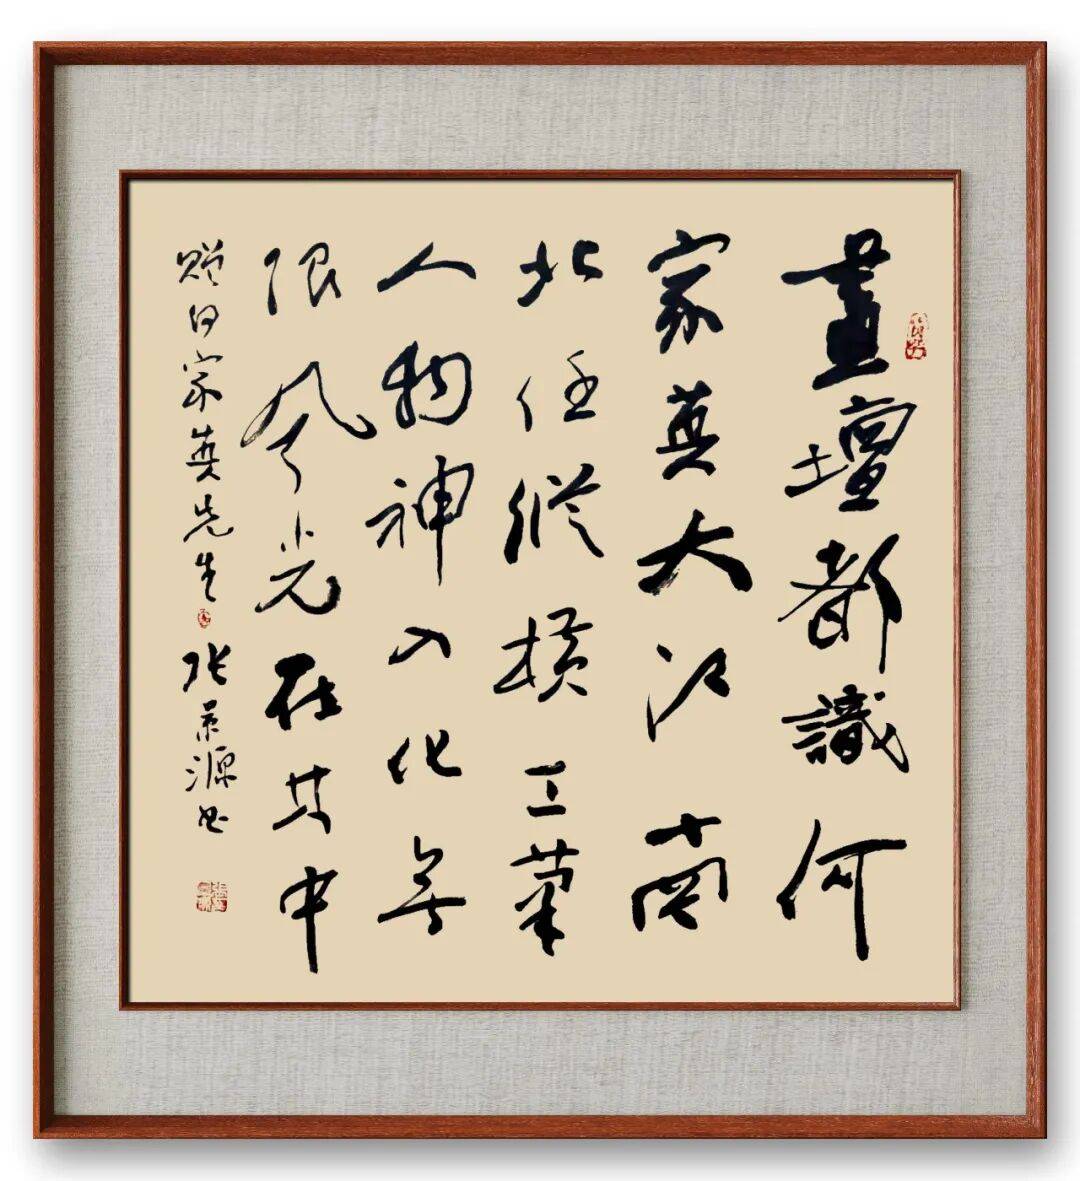 畫壇都識何
家英大江南
北任縱橫工筆
人物神入化無
限風光在其中
贈何家英先生 張景源書